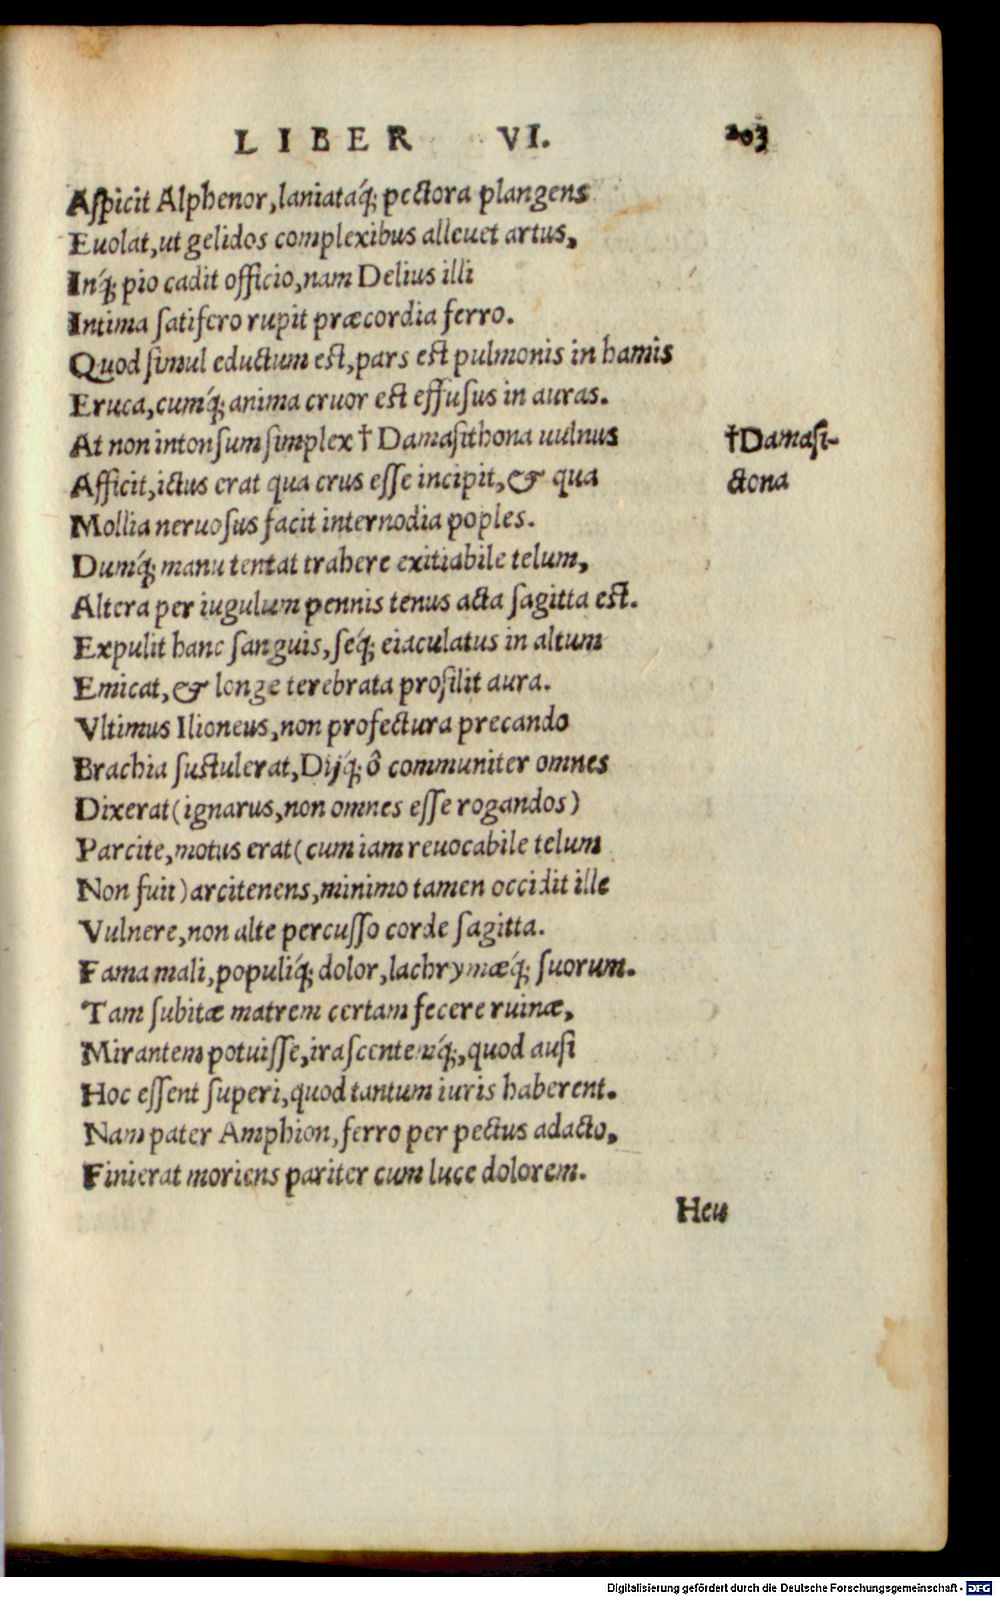 LIBER VI. 203
Aſpicit Alphenor, laniataq́; pectora plangens
Euolat, ut gelidos complexibus alleuet artus,
Inq́; pio cadit officio, nam Delius illi
Intima fatifero rupit præcordia ferro.
Quod ſimul eductum eſt, pars eſt pulmonis in hamis
Eruca, cumq́; anima cruor eſt effuſus in auras.
At non intonſum ſimplex † Damaſithona uulnus
†Damaſi-
Afficit, ictus erat qua crus eſſe incipit, & qua
ctona
Mollia neruoſus facit internodia poples.
Dumq́; manu tentat trahere exitiabile telum,
Altera per iugulum pennis tenus acta ſagitta eſt.
Expulit hanc ſanguis, ſeq́; eiaculatus in altum
Emicat, & longe terebrata proſilit aura.
Vltimus Ilioneus, non profectura precando
Brachia ſuſtulerat, Dijq́; ô communiter omnes
Dixerat (ignarus, non omnes eſſe rogandos)
Parcite, motus erat (cum iam reuocabile telum
Non fuit) arcitenens, minimo tamen occidit ille
Vulnere, non alte percuſſo corde ſagitta.
Fama mali, populiq́; dolor, lachrymæq́; ſuorum.
Tam ſubitæ matrem certam fecere ruinæ,
Mirantem potuiſſe, iraſcentemq́;, quod auſi
Hoc eſſent ſuperi, quod tantum iuris haberent.
Nam pater Amphion, ferro per pectus adacto,
Finierat moriens pariter cum luce dolorem.
Heu
Digitalisierung gefördert durch die Deutsche Forschungsgemeinschaft - DFG